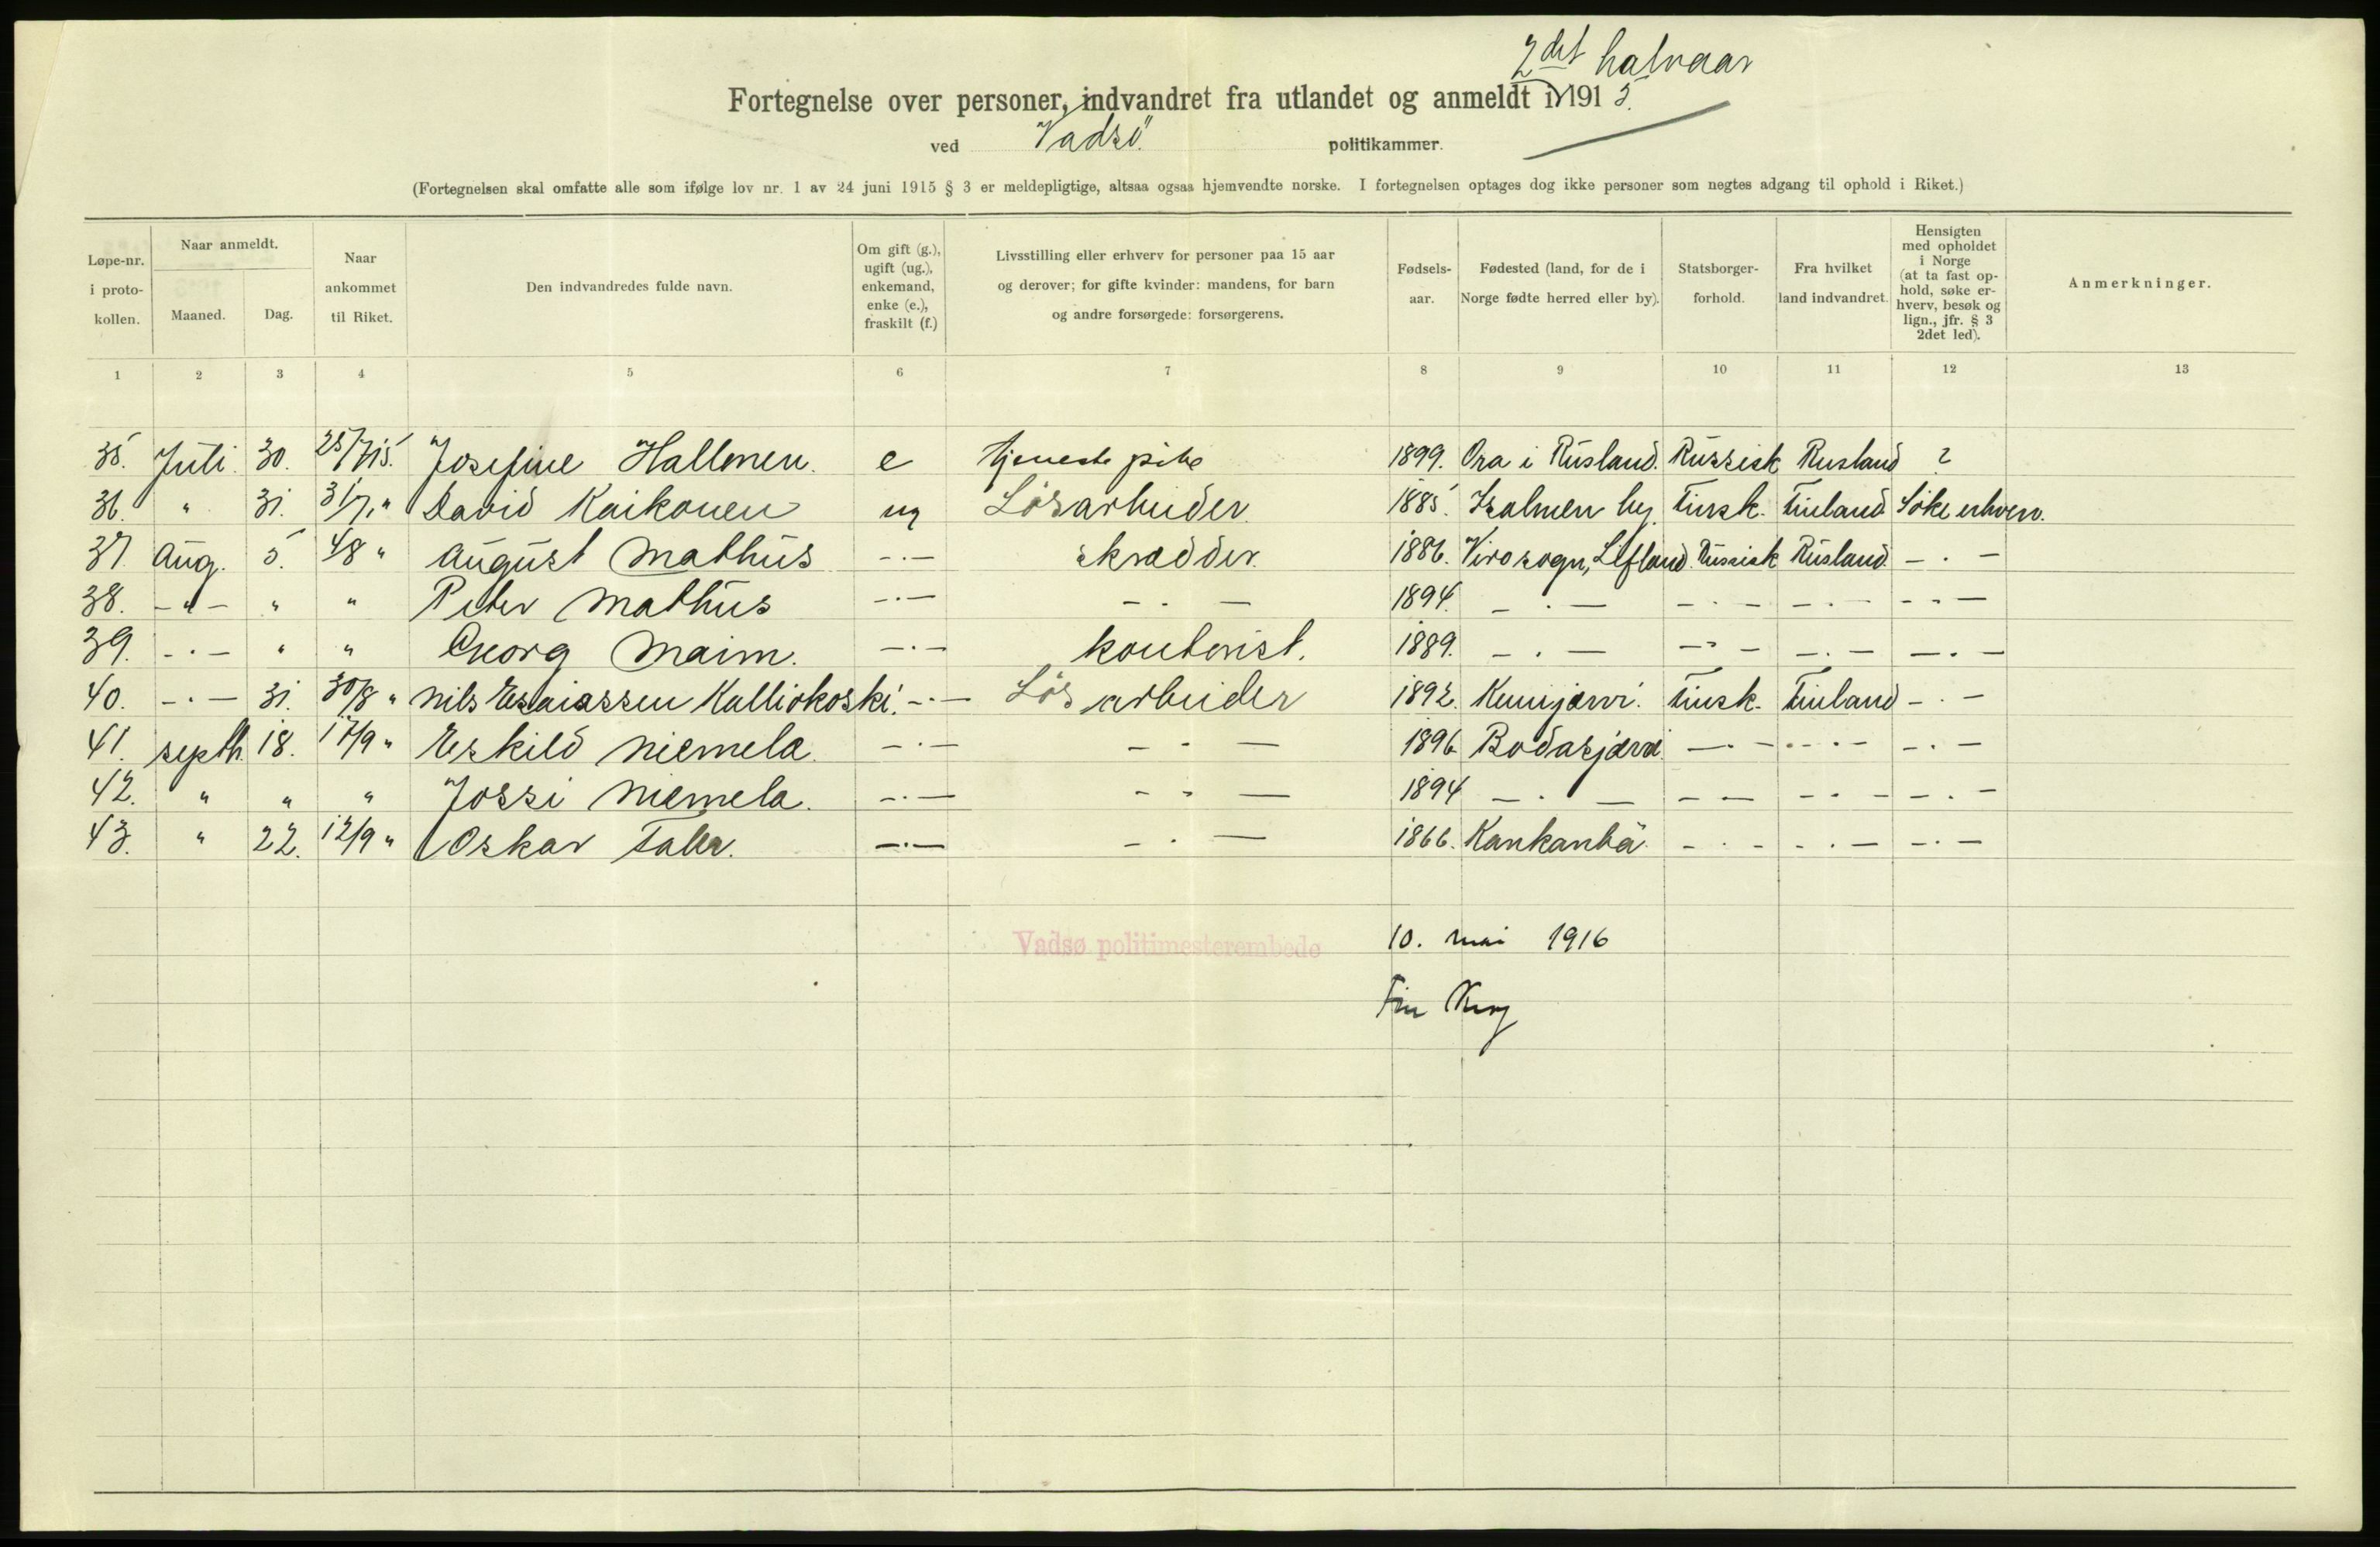 2det halvaar
Fortegnelse over personer, indvandret fra utlandet og anmeldt i 1915.
ved Vadsö politikammer.
(Fortegnelsen skal omfatte alle som ifølge lov nr. 1 av 24 juni 1915 § 3 er meldepligtige, altsaa ogsaa hjemvendte norske. I fortegnelsen optages dog ikke personer som negtes adgang til ophold i Riket.)
Løpe-nr. i proto-kollen. Naar anmeldt. Maaned. Dag. Naar ankommet til Riket. Den indvandredes fulde navn. Om gift (g.), ugift (ug.), enkemand, enke (e.), fraskilt (f.) Livsstilling eller erhverv for personer paa 15 aar og derover; for gifte kvinder: mandens, for barn og andre forsørgede: forsørgerens. Fødsels-aar. Fødested (land, for de i Norge fødte herred eller by). Statsborger-forhold. Fra hvilket land indvandret. Hensigten med opholdet i Norge (at ta fast op-hold, søke er-hverv, besøk og lign., jfr. § 3 2det led). Anmerkninger.
1 2 3 4 5 6 7 8 9 10 11 12 13
35. Juli 30. 25/7 15. Josefine Hallonen. e tjenestepike 1899. Ora i Rusland. Russisk Rusland ?
36. " 31. 31/7 " David Kaikonen ug Lösarbeider. 1885. by. Finsk. Finland Söke erhverv.
37. Aug. 5. 4/8 " August Mathus -"- skrædder. 1886. Viro sogn, Lifland. Russisk Rusland. -"-
38. -"- " " Peter Mathus -"- -"- 1894. -"- -"- -"- -"-
39. -"- " " Georg Maim. -"- kontorist. 1889. -"- -"- -"- -"-
40. -"- 31. 30/8 " Nils Esaiassen Kalliokoski. -"- Lös arbeider 1892. Kemijærvi. Finsk. Finland -"-
41. septb. 18. 17/9 " Eskild Niemela. -"- -"- 1896 Bodasjærvi. -"- -"- -"-
42. " " " Jossi Niemela. -"- -"- 1894 -"- -"- -"- -"-
43. " 22. 12/9 " Oskar -"- -"- 1866. Kankanbä. -"- -"- -"-
Vadsø politimesterembede 10. mai 1916